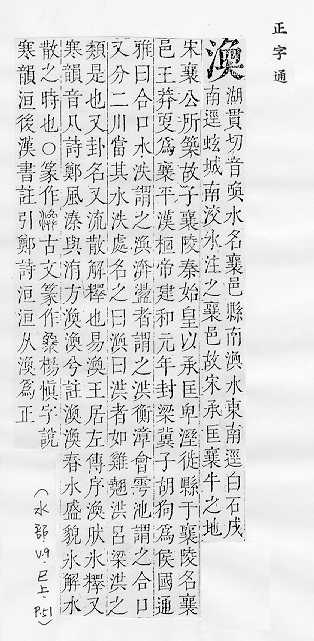 正字通
渙
湖貫切音奐水名襄邑縣南渙水東南逕白石戍
南逕蚿城南洨水注之襄邑故宋承匡襄牛之地
宋襄公所築故子襄陵秦始皇以承匡卑溼徙縣于襄陵名襄
邑王莽更為襄平漢桓帝建和元年封梁冀子胡狗為侯國通
雅曰合口水泆謂之渙濟者謂之洪衡漳會雩池謂之合口
又分二川當其水泆處名之曰渙曰洪者如雞翹洪呂梁洪之
類是也又卦名又流散解釋也易渙王居左傳序渙狀氷釋又
寒韻音凡詩鄭風溱與洧方渙渙兮註渙渙春水盛貌氷解水
散之時也○篆作古文篆作楊慎字說
寒韻洹後漢書註引鄭詩洹洹从渙為正
(水部.V.9.巳上.P.51)